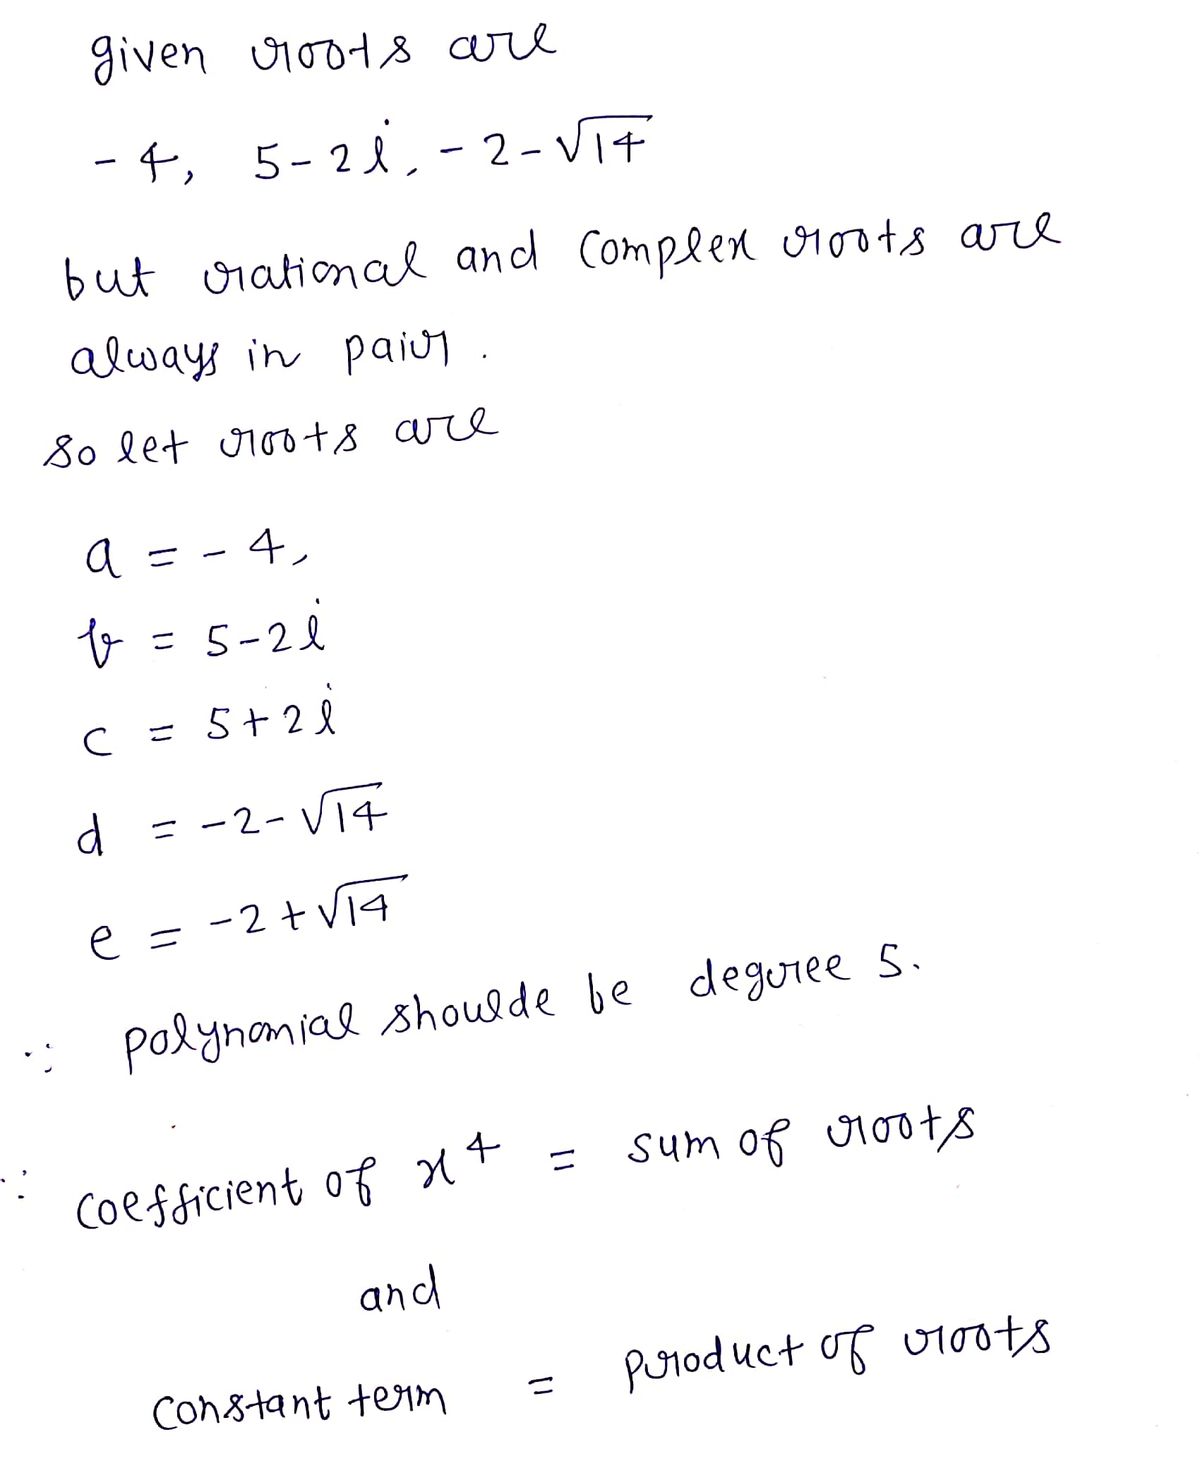 given roots are
-4, 5-2i, -2-√14
but rational and complex roots are
always in pair.
so let roots are
a = -4,
b = 5-2i
c = 5+2i
d = -2-√14
e = -2+√14
∵ polynomial shoulde be degree 5.
∵ coefficient of x⁴ = sum of roots
and
constant term = product of roots